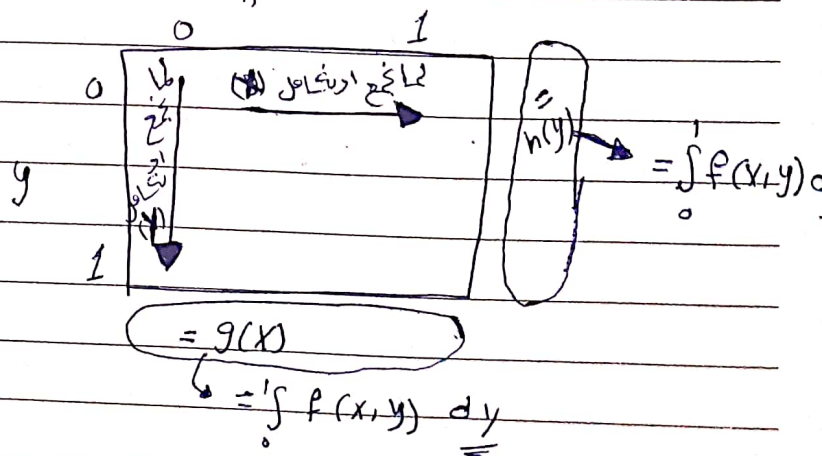 0 1
0 لما نجمع او نكامل (x)
لما نجمع او نكامل (y)
y
1
= h(y)
= ∫₀¹ f(x,y) d
= g(x)
= ∫₀¹ f(x,y) dy